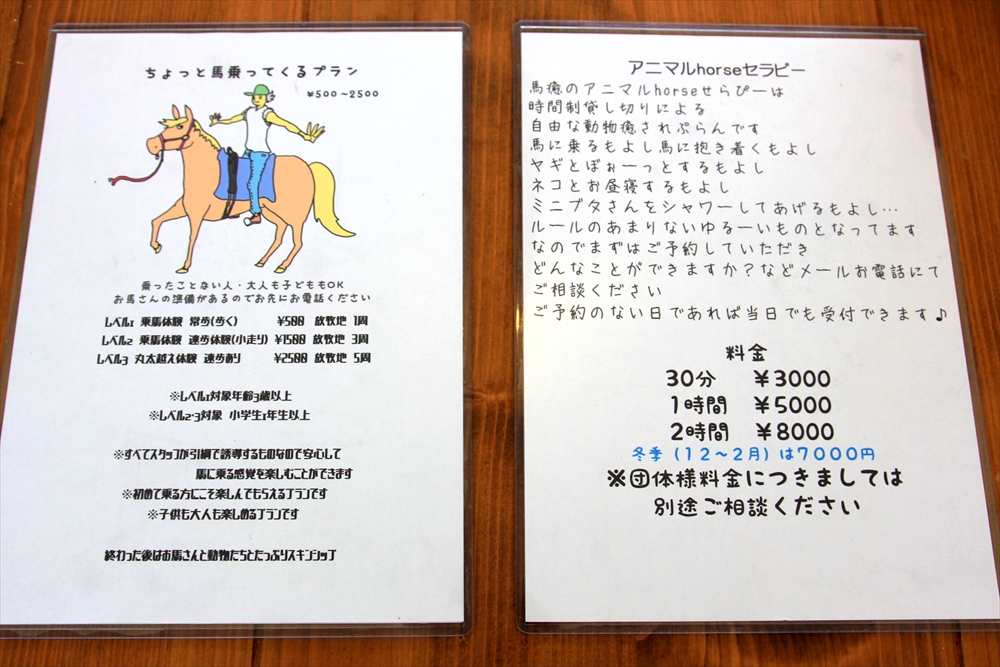 ちょっと馬乗ってくるプラン
¥500～2500
乗ったことない人・大人も子どももOK
お馬さんの準備があるのでお先にお電話ください
レベル1 乗馬体験 常歩(歩く) ¥500 放牧地 1周
レベル2 乗馬体験 速歩体験(小走り) ¥1500 放牧地 3周
レベル3 丸太越え体験 速歩あり ¥2500 放牧地 5周
※レベル1対象年齢3歳以上
※レベル2・3対象 小学生1年生以上
※すべてスタッフが引綱で誘導するものなので安心して
馬に乗る感覚を楽しむことができます
※初めて乗る方にこそ楽しんでもらえるプランです
※子供も大人も楽しめるプランです
終わった後はお馬さんと動物たちとたっぷりスキンシップ
アニマルhorseセラピー
馬癒のアニマルhorseせらぴーは
時間制貸し切りによる
自由な動物癒されぷらんです
馬に乗るもよし馬に抱き着くもよし
ヤギとぼぉーっとするもよし
ネコとお昼寝するもよし
ミニブタさんをシャワーしてあげるもよし…
ルールのあまりないゆるーいものとなってます
なのでまずはご予約していただき
どんなことができますか？などメールお電話にて
ご相談ください
ご予約のない日であれば当日でも受付できます♪
料金
30分 ¥3000
1時間 ¥5000
2時間 ¥8000
冬季（12～2月）は7000円
※団体様料金につきましては
別途ご相談ください